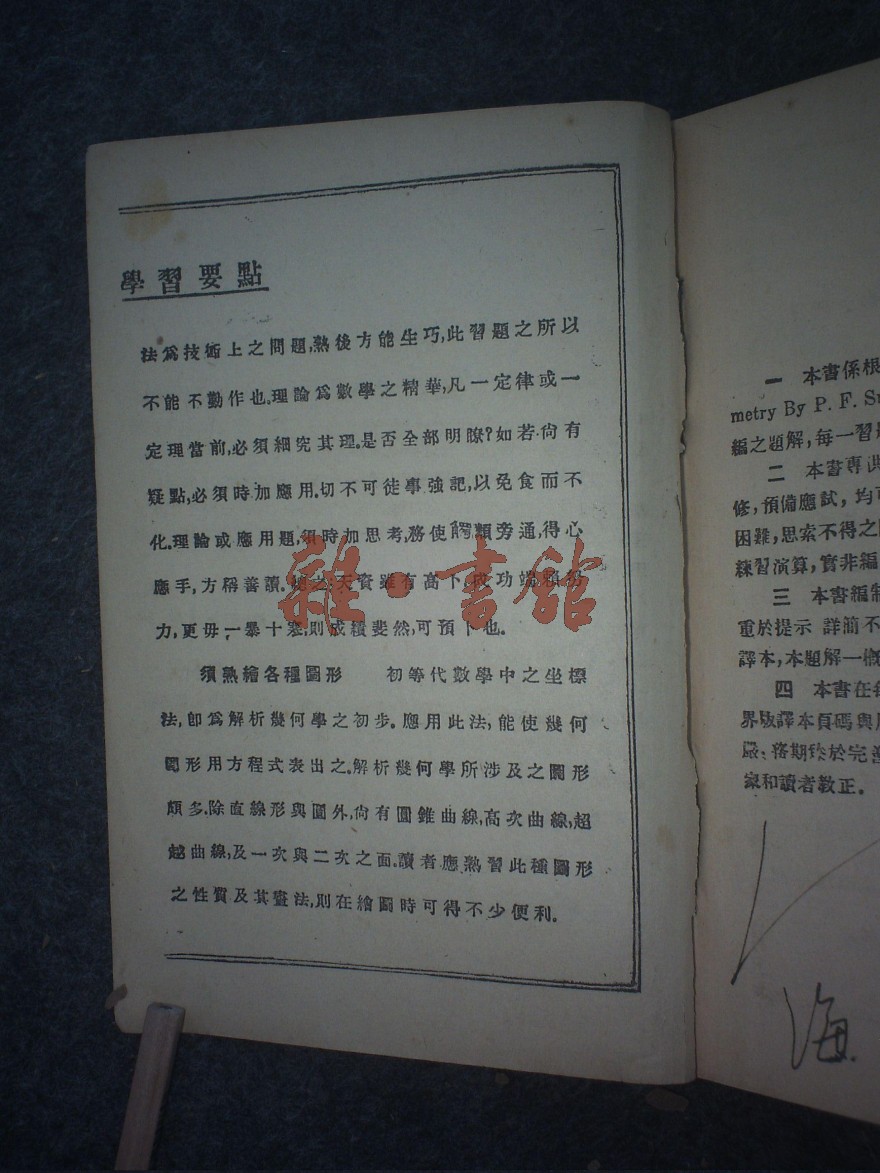 學習要點
法爲技術上之問題,熟後方能生巧,此習題之所以
不能不勤作也.理論爲數學之精華,凡一定律或一
定理當前,必須細究其理.是否全部明瞭?如若尙有
疑點,必須時加應用.切不可徒事強記,以免食而不
化.理論或應用題,須時加思考,務使觸類旁通,得心
應手,方稱善讀.總之,天資雖有高下,成功端賴努
力,更毋一暴十寒,則成績斐然,可預卜也.
須熟繪各種圖形 初等代數學中之坐標
法,卽爲解析幾何學之初步.應用此法,能使幾何
圖形用方程式表出之.解析幾何學所涉及之圖形
頗多.除直線形與圓外,尙有圓錐曲線,高次曲線,超
越曲線,及一次與二次之面.讀者應熟習此種圖形
之性質及其畫法,則在繪圖時可得不少便利.
雜·書館
一 本書係根
metry By P. F. S
編之題解,每一習
二 本書專
修,預備應試,均
困難,思索不得之
練習演算,實非編
三 本書編制
重於提示 詳簡不
譯本,本題解一概
四 本書在
界版譯本頁碼與
嚴;務期臻於完善
家和讀者敎正.
海